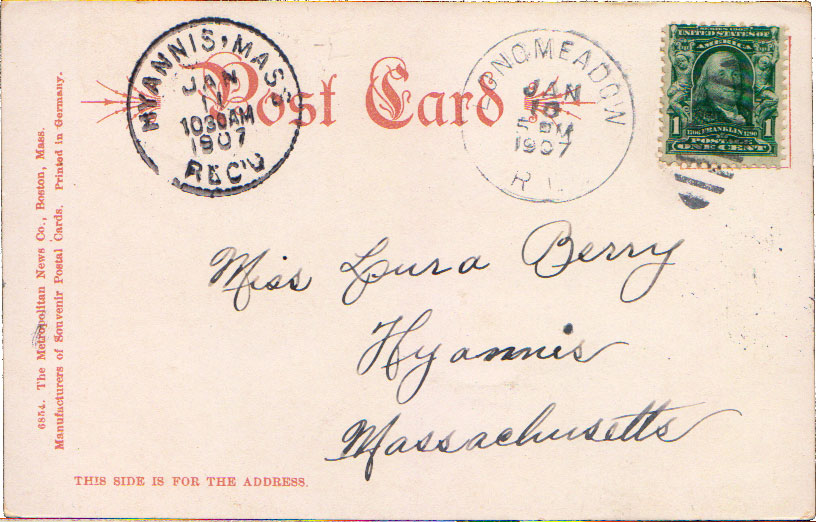 Post Card
HYANNIS, MASS.
JAN
11
1030AM
1907
REC'D
LONGMEADOW
JAN
10
5 PM
1907
R. I.
SERIES 1902
UNITED STATES OF
AMERICA
1 1706 FRANKLIN 1790 1
POSTAGE
ONE CENT
Miss Lura Berry
Hyannis
Massachusetts
6854. The Metropolitan News Co., Boston, Mass.
Manufacturers of Souvenir Postal Cards. Printed in Germany.
THIS SIDE IS FOR THE ADDRESS.